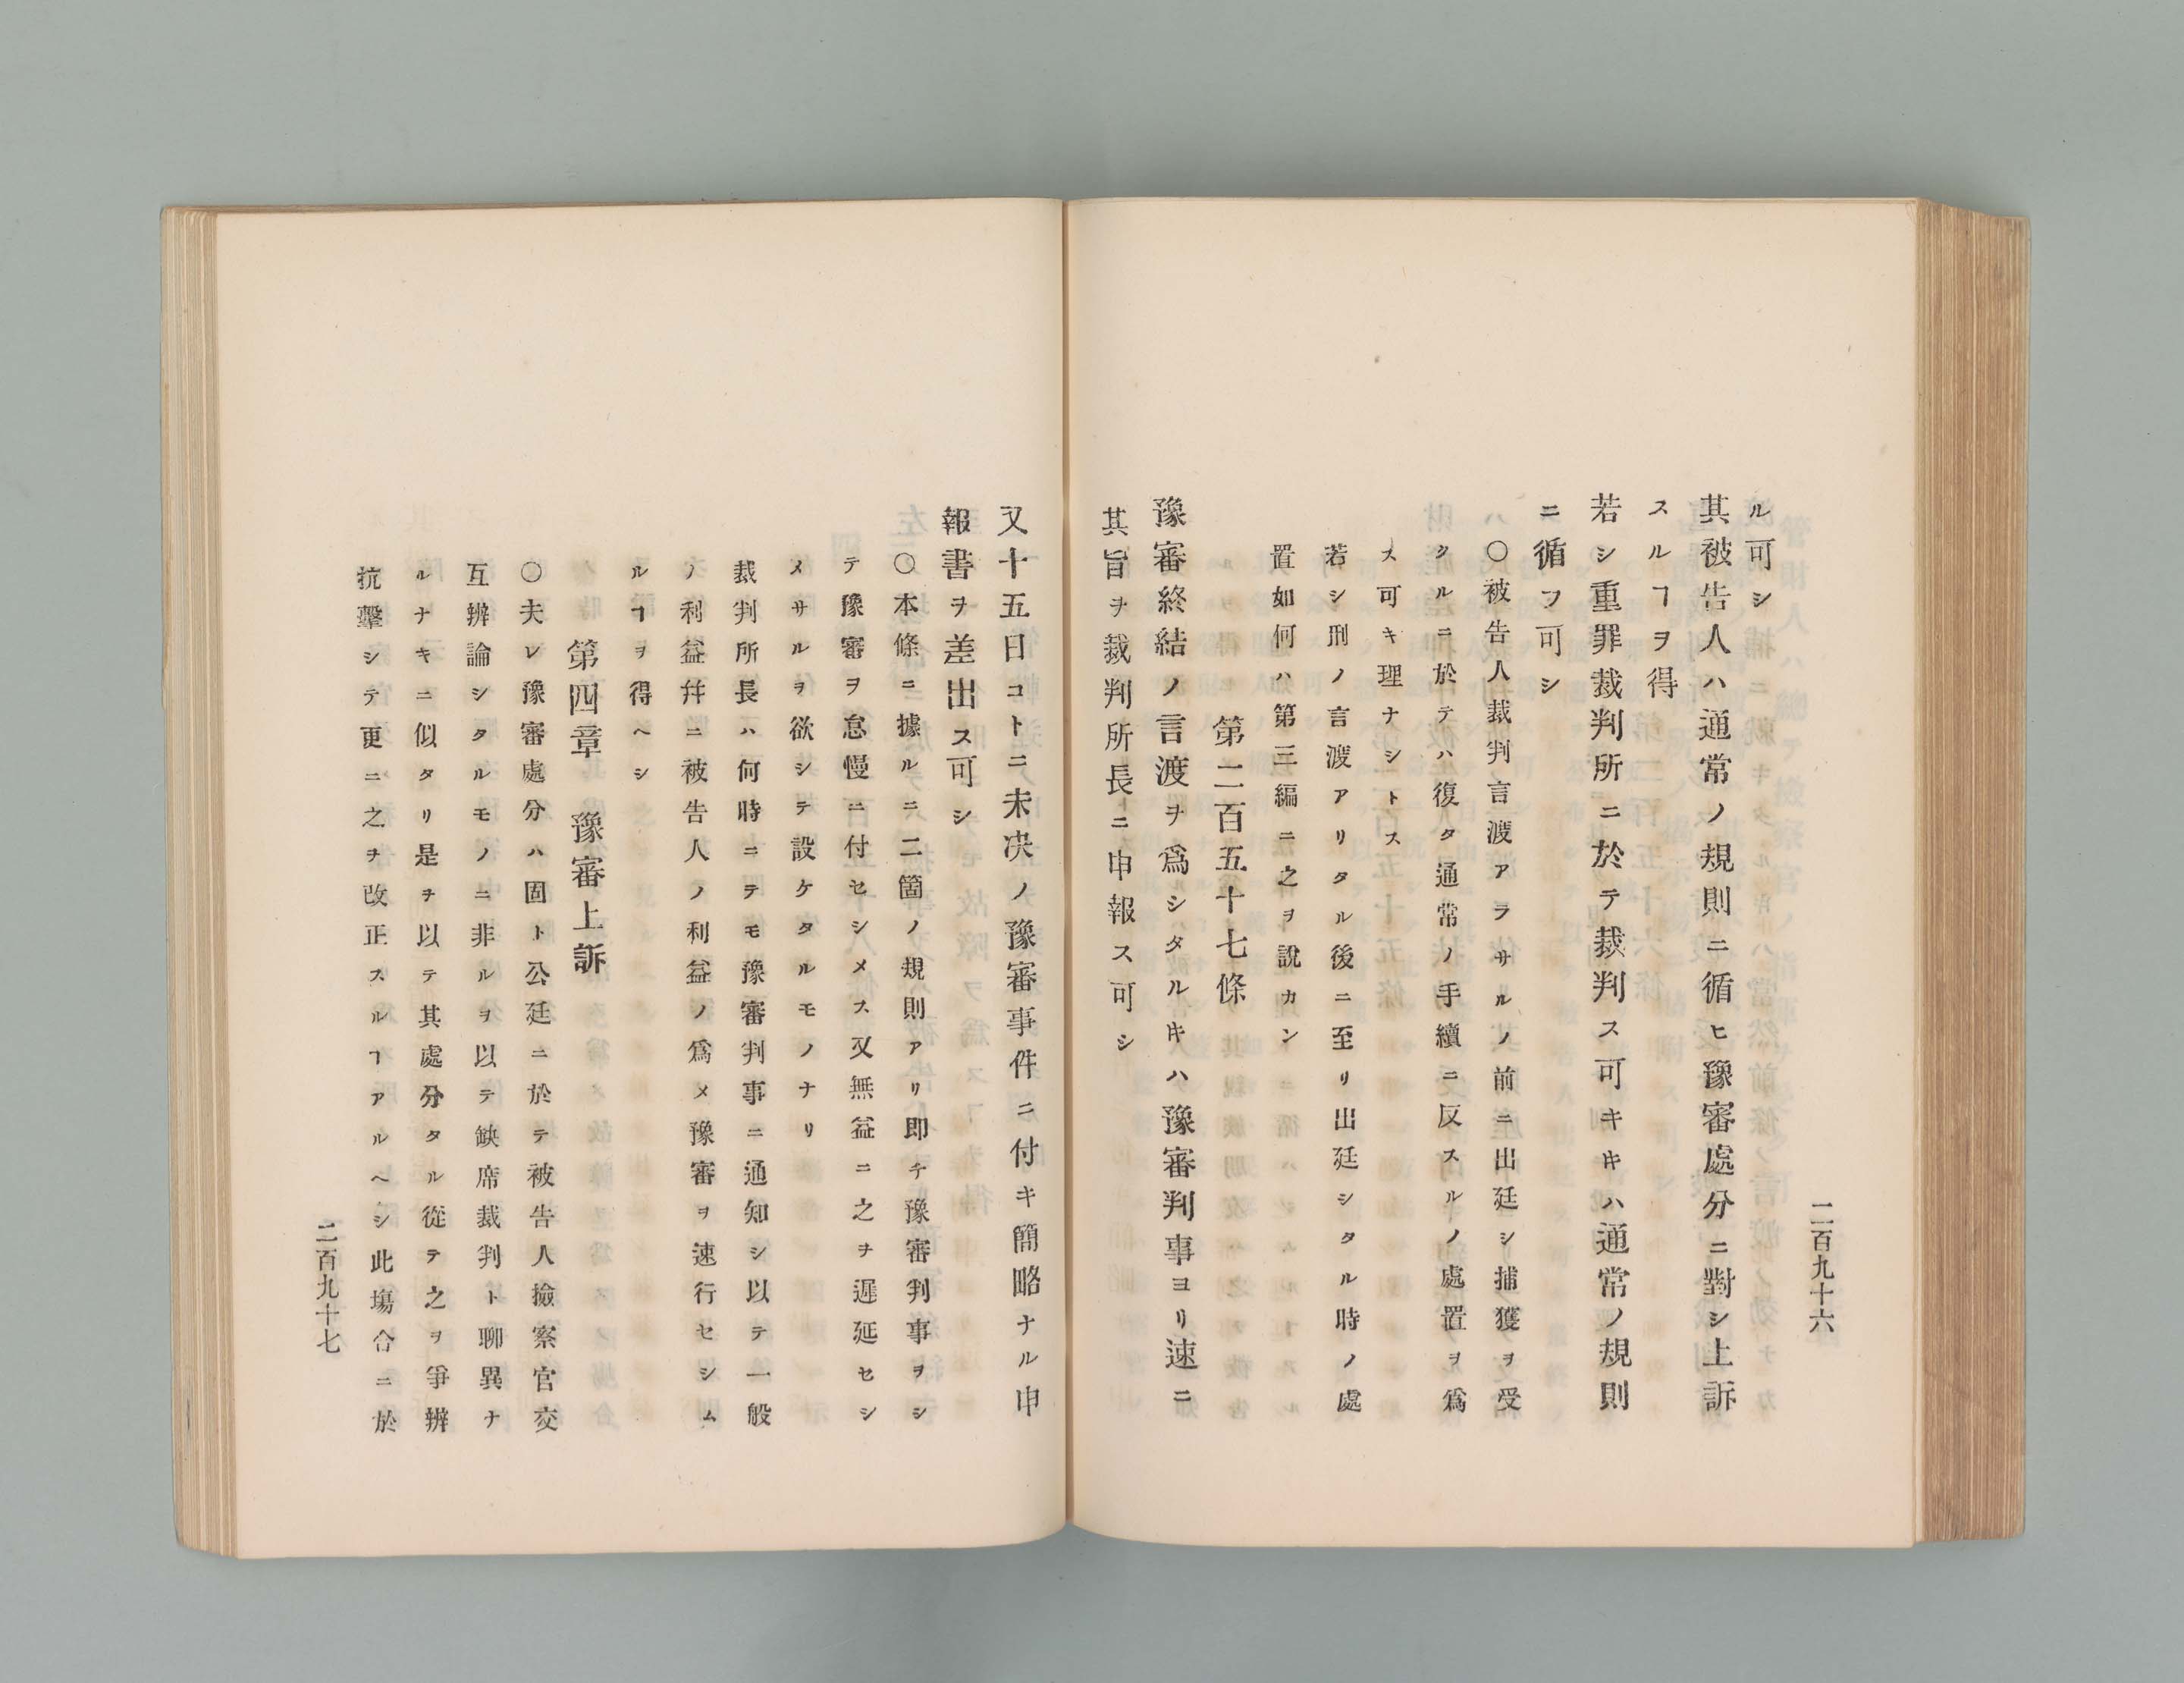 二百九十六
ル可シ
其被告人ハ通常ノ規則ニ循ヒ豫審處分ニ對シ上訴
スルヿヲ得
若シ重罪裁判所ニ於テ裁判ス可キキハ通常ノ規則
ニ循フ可シ
〇被告人裁判言渡アラサルノ前ニ出廷シ捕獲ヲ受
クルニ於テハ復タ通常ノ手續ニ反スルノ處置ヲ爲
ス可キ理ナシトス
若シ刑ノ言渡アリタル後ニ至リ出廷シタル時ノ處
置如何ハ第三編ニ之ヲ說カン
第二百五十七條
豫審終結ノ言渡ヲ爲シタルキハ豫審判事ヨリ速ニ
其旨ヲ裁判所長ニ申報ス可シ
又十五日コトニ未決ノ豫審事件ニ付キ簡略ナル申
報書ヲ差出ス可シ
〇本條ニ據ルニ二箇ノ規則アリ即チ豫審判事ヲシ
テ豫審ヲ怠慢ニ付セシメス又無益ニ之ヲ遲延セシ
メサルヲ欲シテ設ケタルモノナリ
裁判所長ハ何時ニテモ豫審判事ニ通知シ以テ一般
ノ利益幷ニ被告人ノ利益ノ爲メ豫審ヲ速行セシム
ルヿヲ得ヘシ
第四章 豫審上訴
〇夫レ豫審處分ハ固ト公廷ニ於テ被告人撿察官交
互辨論シタルモノニ非ルヲ以テ缺席裁判ト聊異ナ
ルナキニ似タリ是ヲ以テ其處分タル從テ之ヲ爭辨
抗擊シテ更ニ之ヲ改正スルヿアルヘシ此塲合ニ於
二百九十七